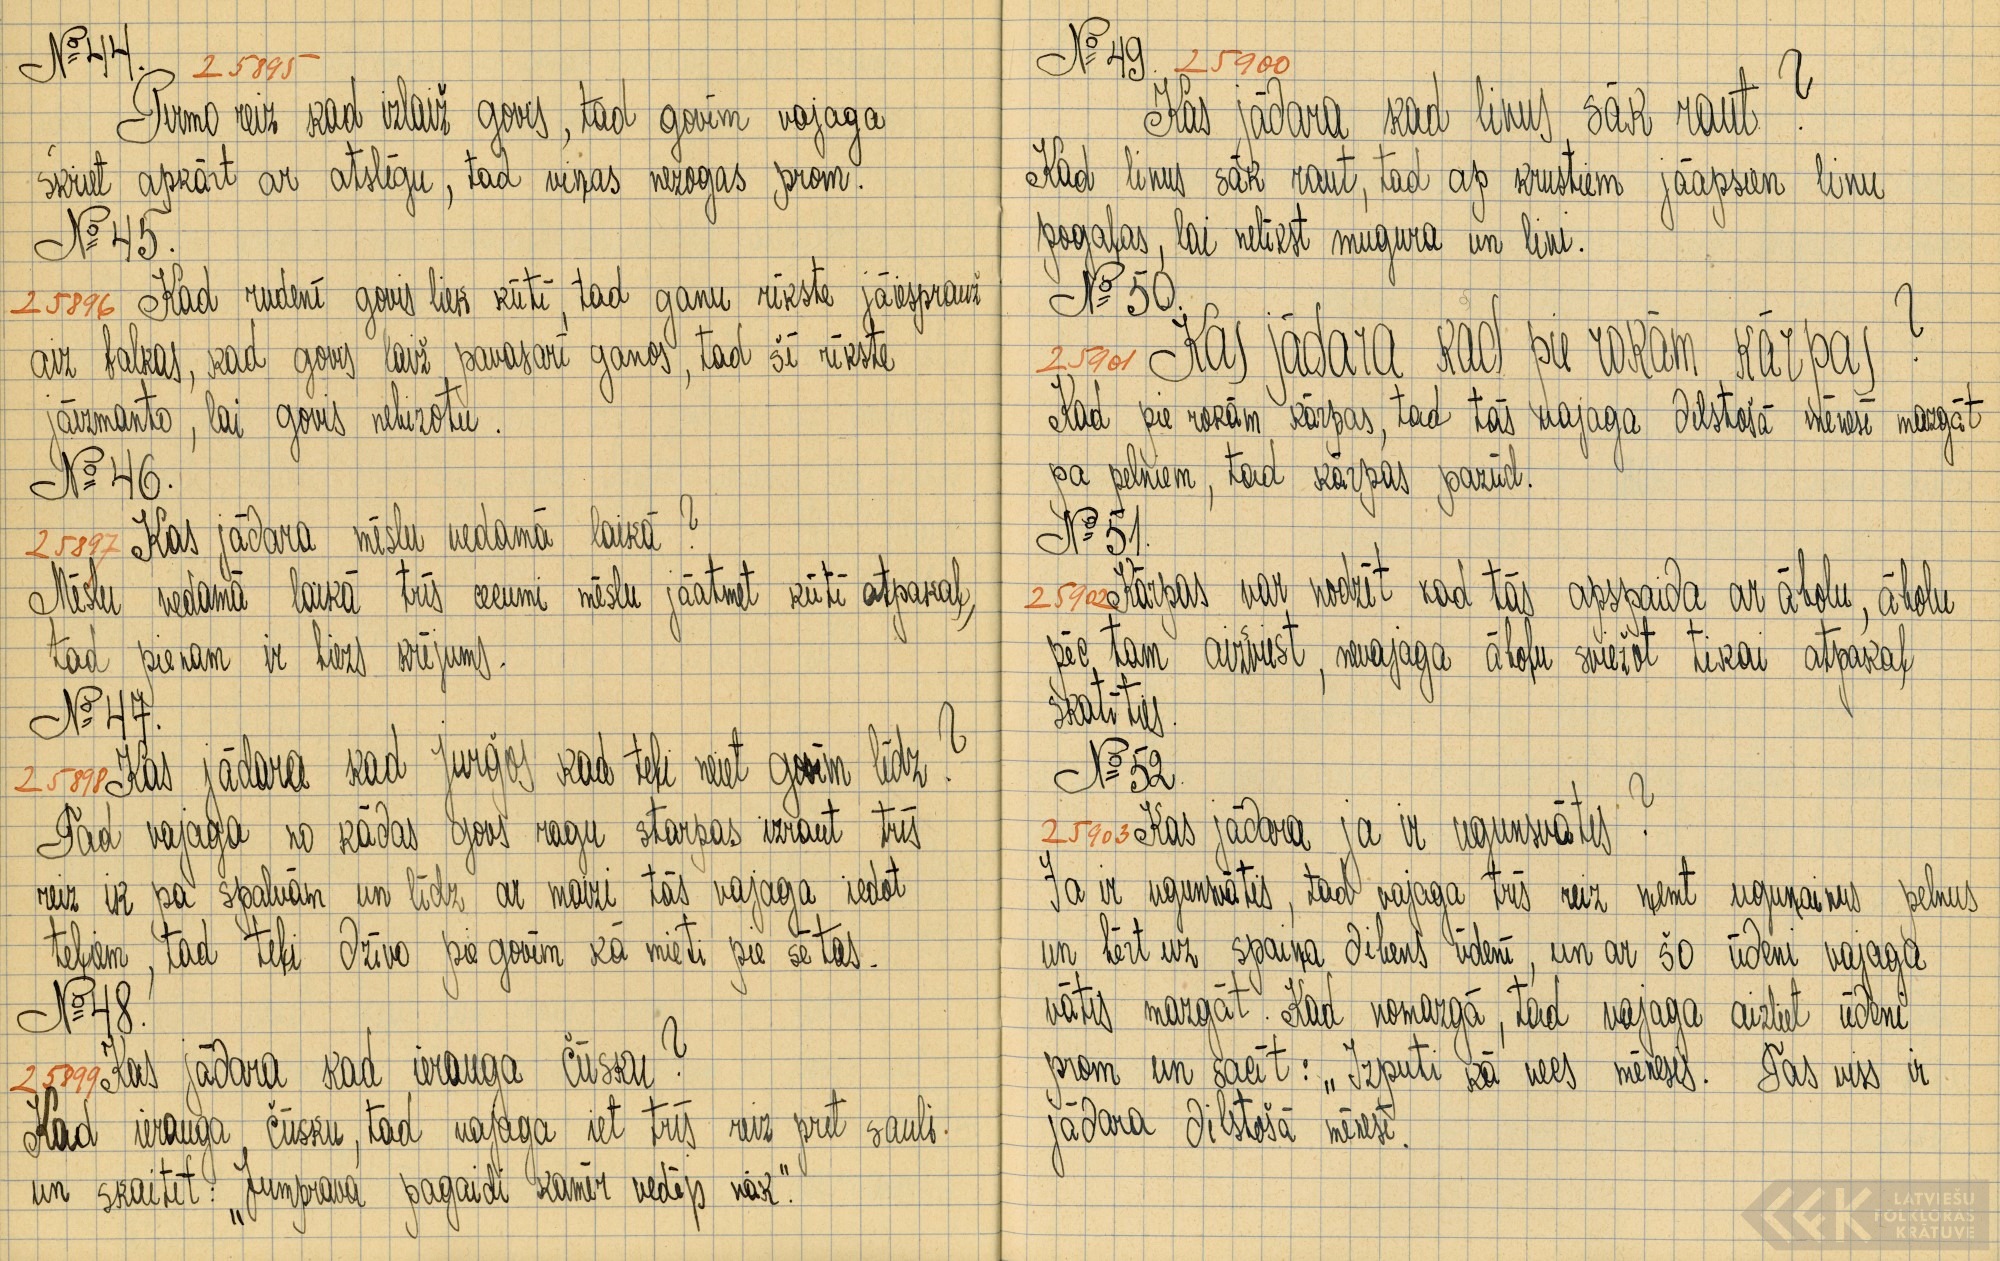 № 44.
25895
Pirmo reiz kad izlaiž govis, tad govīm vajaga
skriet apkārt ar atslēgu, tad viņas nezogas prom.
№ 45.
25896 Kad rudenī govis liek kūtī, tad ganu rīkste jāiesprauž
aiz balkas, kad govis laiž pavasarī ganos, tad šī rīkste
jāizmanto, lai govis nebizotu.
№ 46.
25897 Kas jādara mēslu vedamā laikā?
Mēslu vedamā laikā trīs cecumi mēslu jāatmet kūtī atpakaļ,
tad pienam ir biezs krējums.
№ 47.
25898 Kas jādara kad Jurģos kad teļi neiet govīm līdz?
Tad vajaga no kādas govs ragu starpas izraut trīs
reiz ik pa spalvām un līdz ar maizi tās vajaga iedot
teļiem, tad teļi dzīvo pie govīm kā mieti pie sētas.
№ 48.
25899 Kas jādara kad ierauga čūsku?
Kad ierauga čūsku, tad vajaga iet trīs reiz pret sauli.
un skaitīt: „Jumprava pagaidi kamēr vedējs nāk".
№ 49. 25900
Kas jādara kad linus sāk raut?
Kad linus sāk raut, tad ap krustiem jāapsien linu
pogaļas, lai nelīkst mugura un lini.
№ 50.
25901 Kas jādara kad pie rokām kārpas?
Kad pie rokām kārpas, tad tās vajaga dilstošā mēnesī mazgāt
pa pelniem, tad kārpas pazūd.
№ 51.
25902 Kārpas var nodzīt kad tās apspaida ar ābolu, ābolu
pēc tam aizsviest, nevajaga ābolu sviežot tikai atpakaļ
skatīties.
№ 52.
25903 Kas jādara ja ir ugunsvātis?
Ja ir ugunsvātis, tad vajaga trīs reiz ņemt uguņainus pelnus
un bērt uz spaiņa dibens ūdenī, un ar šo ūdeni vajaga
vātis mazgāt. Kad nomazgā, tad vajaga aizliet ūdeni
prom un sacīt: „Izputi kā vecs mēnesis. Tas viss ir
jādara dilstošā mēnesī.
LATVIEŠU
FOLKLORAS
KRĀTUVE